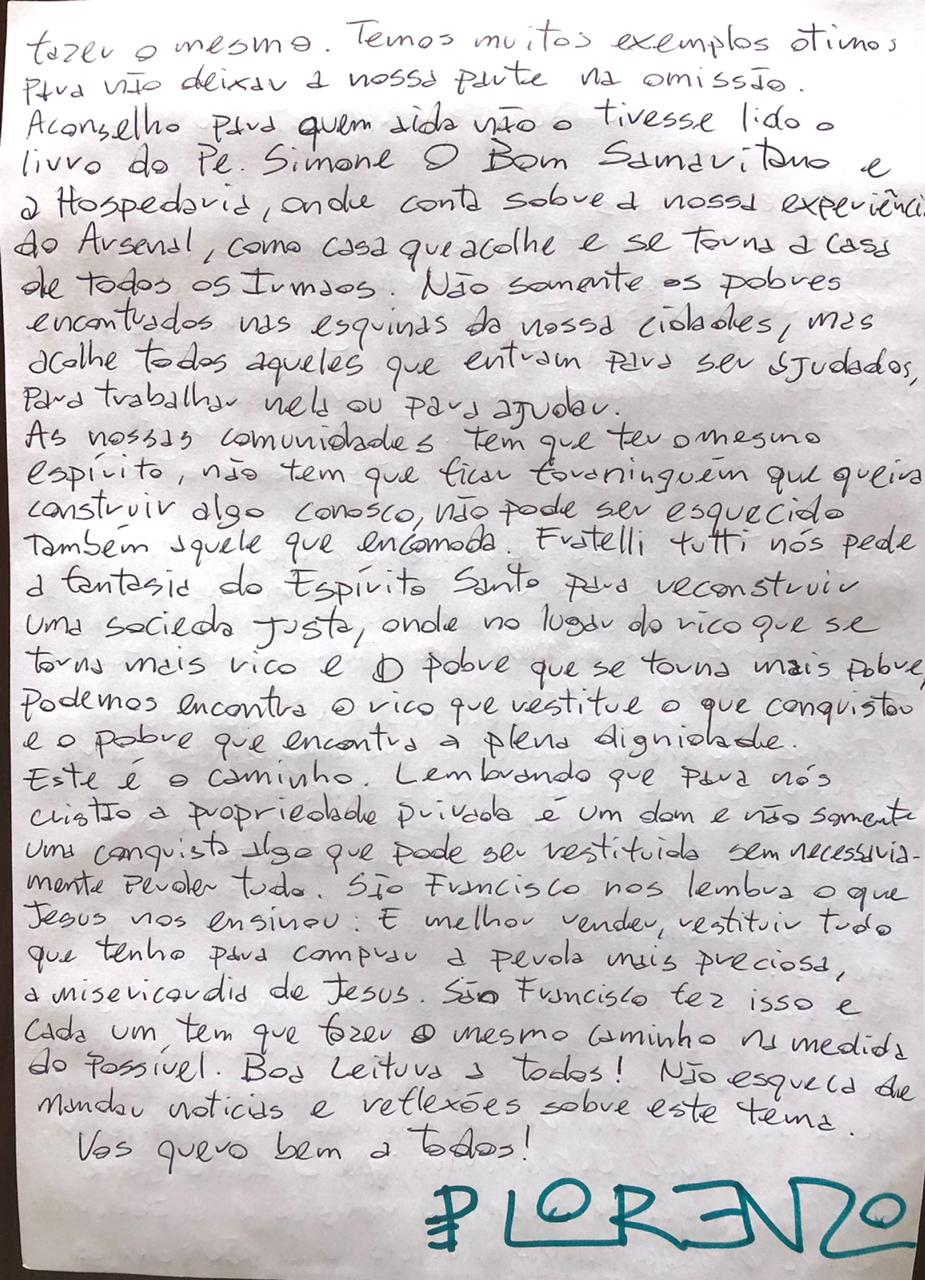 fazer o mesmo. Temos muitos exemplos otimos
para não deixar a nossa parte na omissão.
Aconselho para quem aida não o tivesse lido o
livro do Pe. Simone O Bom Samaritano e
a Hospedaria, onde conta sobre a nossa experiênci
do Arsenal, como casa que acolhe e se torna a casa
de todos os Irmaos. Não somente os pobres
encontrados nas esquinas da nossa cidades, mas
acolhe todos aqueles que entram para ser ajudados,
para trabalhar nela ou para ajudar.
As nossas comunidades tem que ter o mesmo
espírito, não tem que ficar fora ninguém que queira
construir algo conosco, não pode ser esquecido
também aquele que encomoda. Fratelli tutti nós pede
a fantasia do Espírito Santo para reconstruir
uma socieda justa, onde no lugar do rico que se
torna mais rico e o pobre que se torna mais pobre,
podemos encontra o rico que restitue o que conquistou
e o pobre que encontra a plena dignidade.
Este é o caminho. Lembrando que para nós
cristão a propriedade privada é um dom e não somente
uma conquista algo que pode ser restituida sem necessaria-
mente perder tudo. São Francisco nos lembra o que
Jesus nos ensinou: E melhor vender, restituir tudo
que tenho para comprar a perola mais preciosa,
a misericordia de Jesus. São Francisco fez isso e
cada um tem que fazer o mesmo caminho na medida
do possível. Boa leitura a todos! Não esqueca de
mandar noticias e reflexões sobre este tema.
Vos quero bem a todos!
P LORENZO